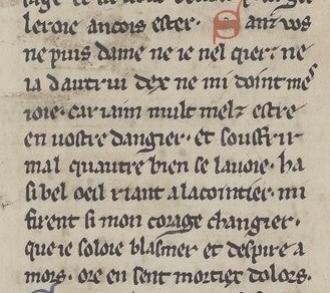 leroie ancois ester. Sanz vos
ne puis dame ne ie nel quer. ne
ia dautrui dex ne mi doint mes
ioie. car iaim mult melz estre
en uostre dangier. et souffrir
mal quautre bien se lauoie. ha
si bel oeil riant alacointier. mi
firent si mon corage changier.
que ie soloie blasmer et despire a
mors. ore en sent mortiex dolors.